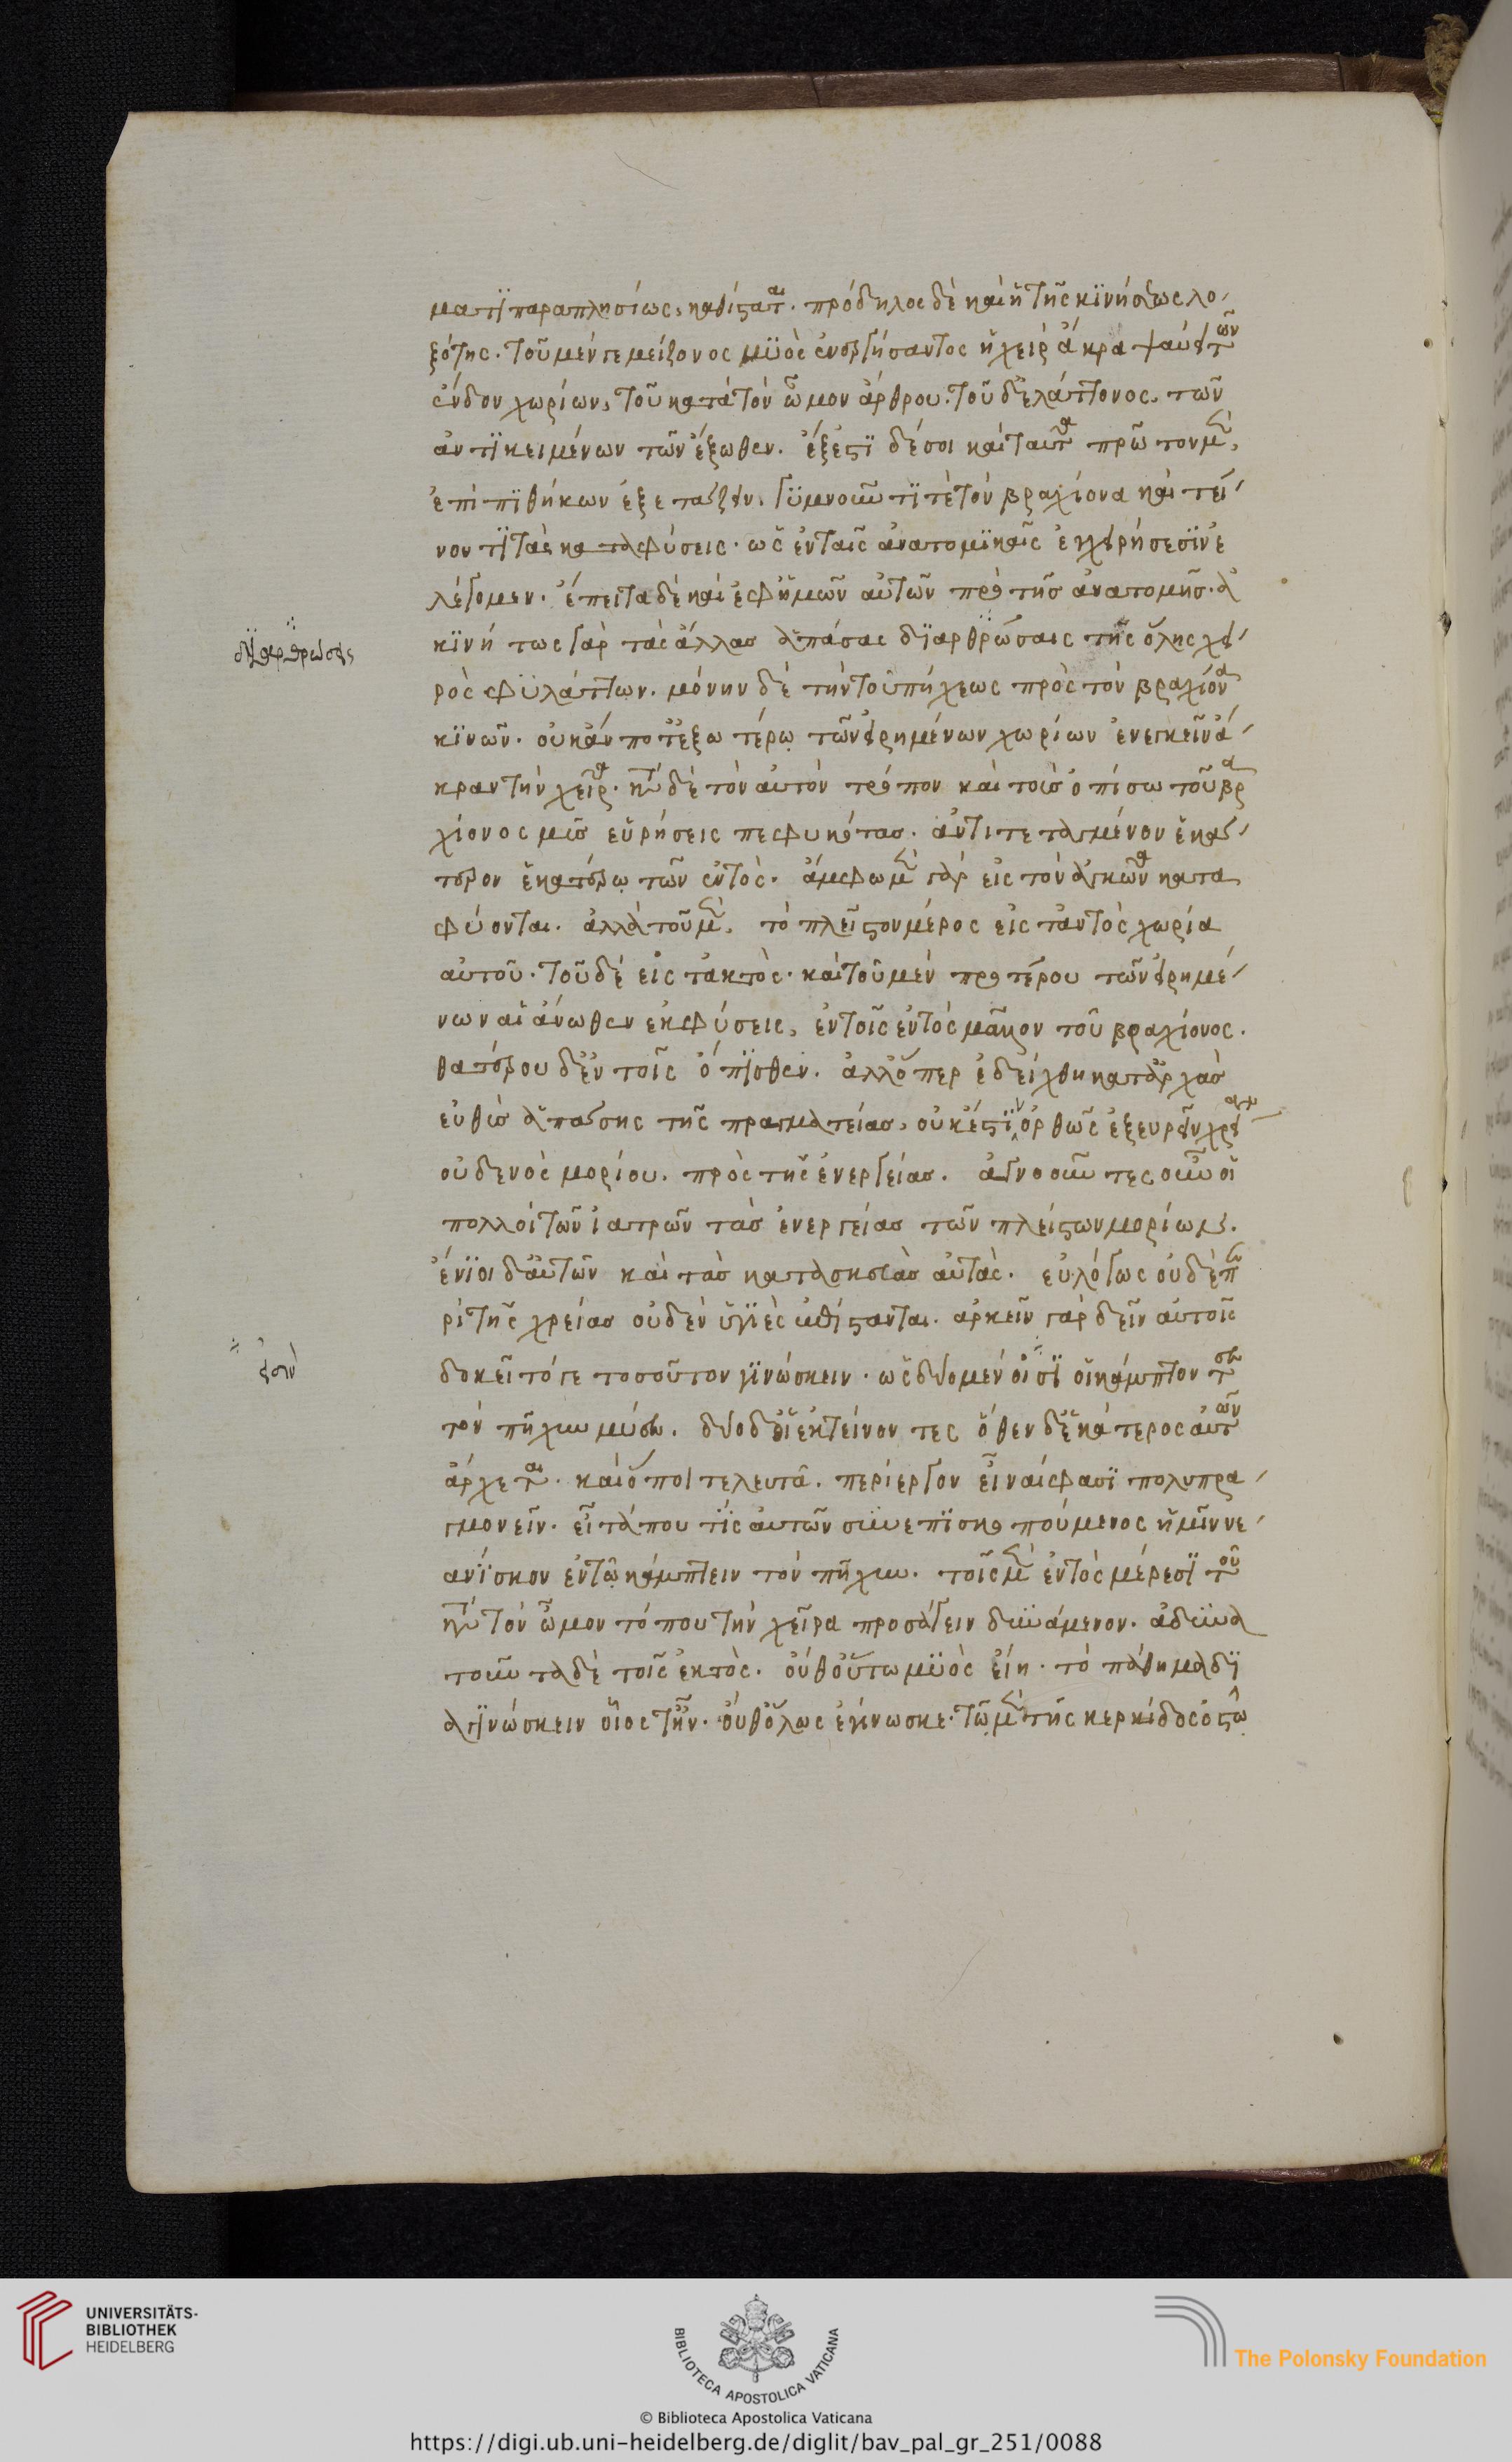 ματι παραπλησίως καθίσταται. πρόδηλος δὲ καὶ ἡ τῆς κινήσεως λο
ξότης. τοῦ μέν γε μείζονος μυὸς ἐνεργήσαντος ἡ χεὶρ ἄκρα ψαύει τῶν
ἔνδον χωρίων, τοῦ κατὰ τὸν ὦμον ἄρθρου. τοῦ δ' ἐλάττονος, τῶν
ἀντικειμένων τῶν ἔξωθεν. ἔξεστι δέ σοι καὶ ταῦτα πρῶτον μὲν,
ἐπὶ πιθήκων ἐξετάζειν, γυμνοῦντί τε τὸν βραχίονα καὶ τεί
νοντι τὰς καταφύσεις. ὡς ἐν ταῖς ἀνατομικαῖς ἐγχειρήσεσιν ἐ
λέγομεν. ἔπειτα δὲ καὶ ἐφ' ἡμῶν αὐτῶν πρὸ τῆς ἀνατομῆς. ἀ
κινήτως γὰρ τὰς ἄλλας ἁπάσας διαρθρώσαις τῆς ὅλης χει
διαρθρώσεις
ρὸς φυλάττων. μόνην δὲ τὴν τοῦ πήχεως πρὸς τὸν βραχίονα
κινῶν. οὐκ ἄν ποτ' ἐξωτέρω τῶν εἰρημένων χωρίων ἐνεγκεῖν ἄ
κραν τὴν χεῖρα. κατὰ δὲ τὸν αὐτὸν τρόπον καὶ τοὺς ὀπίσω τοῦ βρα
χίονος μῦς εὑρήσεις πεφυκότας. ἀντιτεταγμένον ἑκάτερον
ἑκατέρῳ τῶν ἐντός. ἄμφω μὲν γὰρ εἰς τὸν ἀγκῶνα κατα
φύονται. ἀλλὰ τοῦ μὲν, τὸ πλεῖστον μέρος εἰς τἀντὸς χωρία
αὐτοῦ. τοῦ δὲ εἰς τἀκτός. καὶ τοῦ μὲν προτέρου τῶν εἰρημέ
νων αἱ ἄνωθεν ἐκφύσεις, ἐν τοῖς ἐντὸς μᾶλλον τοῦ βραχίονος.
θατέρου δ' ἐν τοῖς ὄπισθεν. ἀλλ' ὅπερ ἐδείχθη κατ' ἀρχὰς
εὐθὺς ἁπάσης τῆς πραγματείας, οὐκ ἔστιν ὀρθῶς ἐξευρεῖν χρείαν
οὐδενὸς μορίου. πρὸς τῆς ἐνεργείας. ἀγνοοῦντες οὖν οἱ
πολλοὶ τῶν ἰατρῶν τὰς ἐνεργείας τῶν πλείστων μορίων.
ἔνιοι δ' αὐτῶν καὶ τὰς κατασκευὰς αὐτάς. εὐλόγως οὐδὲ πε
ρὶ τῆς χρείας οὐδὲν ὑγιὲς ἐπίστανται. ἀρκεῖν γὰρ δεῖν αὐτοῖς
δοκεῖ τό γε τοσοῦτον γινώσκειν. ὡς δύο μέν εἰσι οἱ κάμπτοντες
εἰσὶν
τὸν πῆχυν μύες. δύο δ' οἱ ἐκτείνοντες ὅθεν δ' ἑκάτερος αὐτῶν
ἄρχεται. καὶ ὅποι τελευτᾷ. περίεργον εἶναί φασι πολυπρα
γμονεῖν. εἶτά που τίς αὐτῶν συνεπισκοπούμενος ἡμῖν νε
ανίσκον ἐν τῷ κάμπτειν τὸν πῆχυν. τοῖς μὲν ἐντὸς μέρεσι τοῦ
κατὰ τὸν ὦμον τόπου τὴν χεῖρα προσάγειν δυνάμενον. ἀδυνα
τοῦντα δὲ τοῖς ἐκτός. οὔθ' οὗτω μυὸς εἴη. τὸ πάθημα δι
αγινώσκειν οἷός τ' ἦν. οὔθ' ὅλως ἐγίνωσκε. τῷ μὲν τῆς κερκίδος ὀστῷ
UNIVERSITÄTS-
BIBLIOTHEK
HEIDELBERG
BIBLIOTECA APOSTOLICA VATICANA
The Polonsky Foundation
© Biblioteca Apostolica Vaticana
https://digi.ub.uni-heidelberg.de/diglit/bav_pal_gr_251/0088